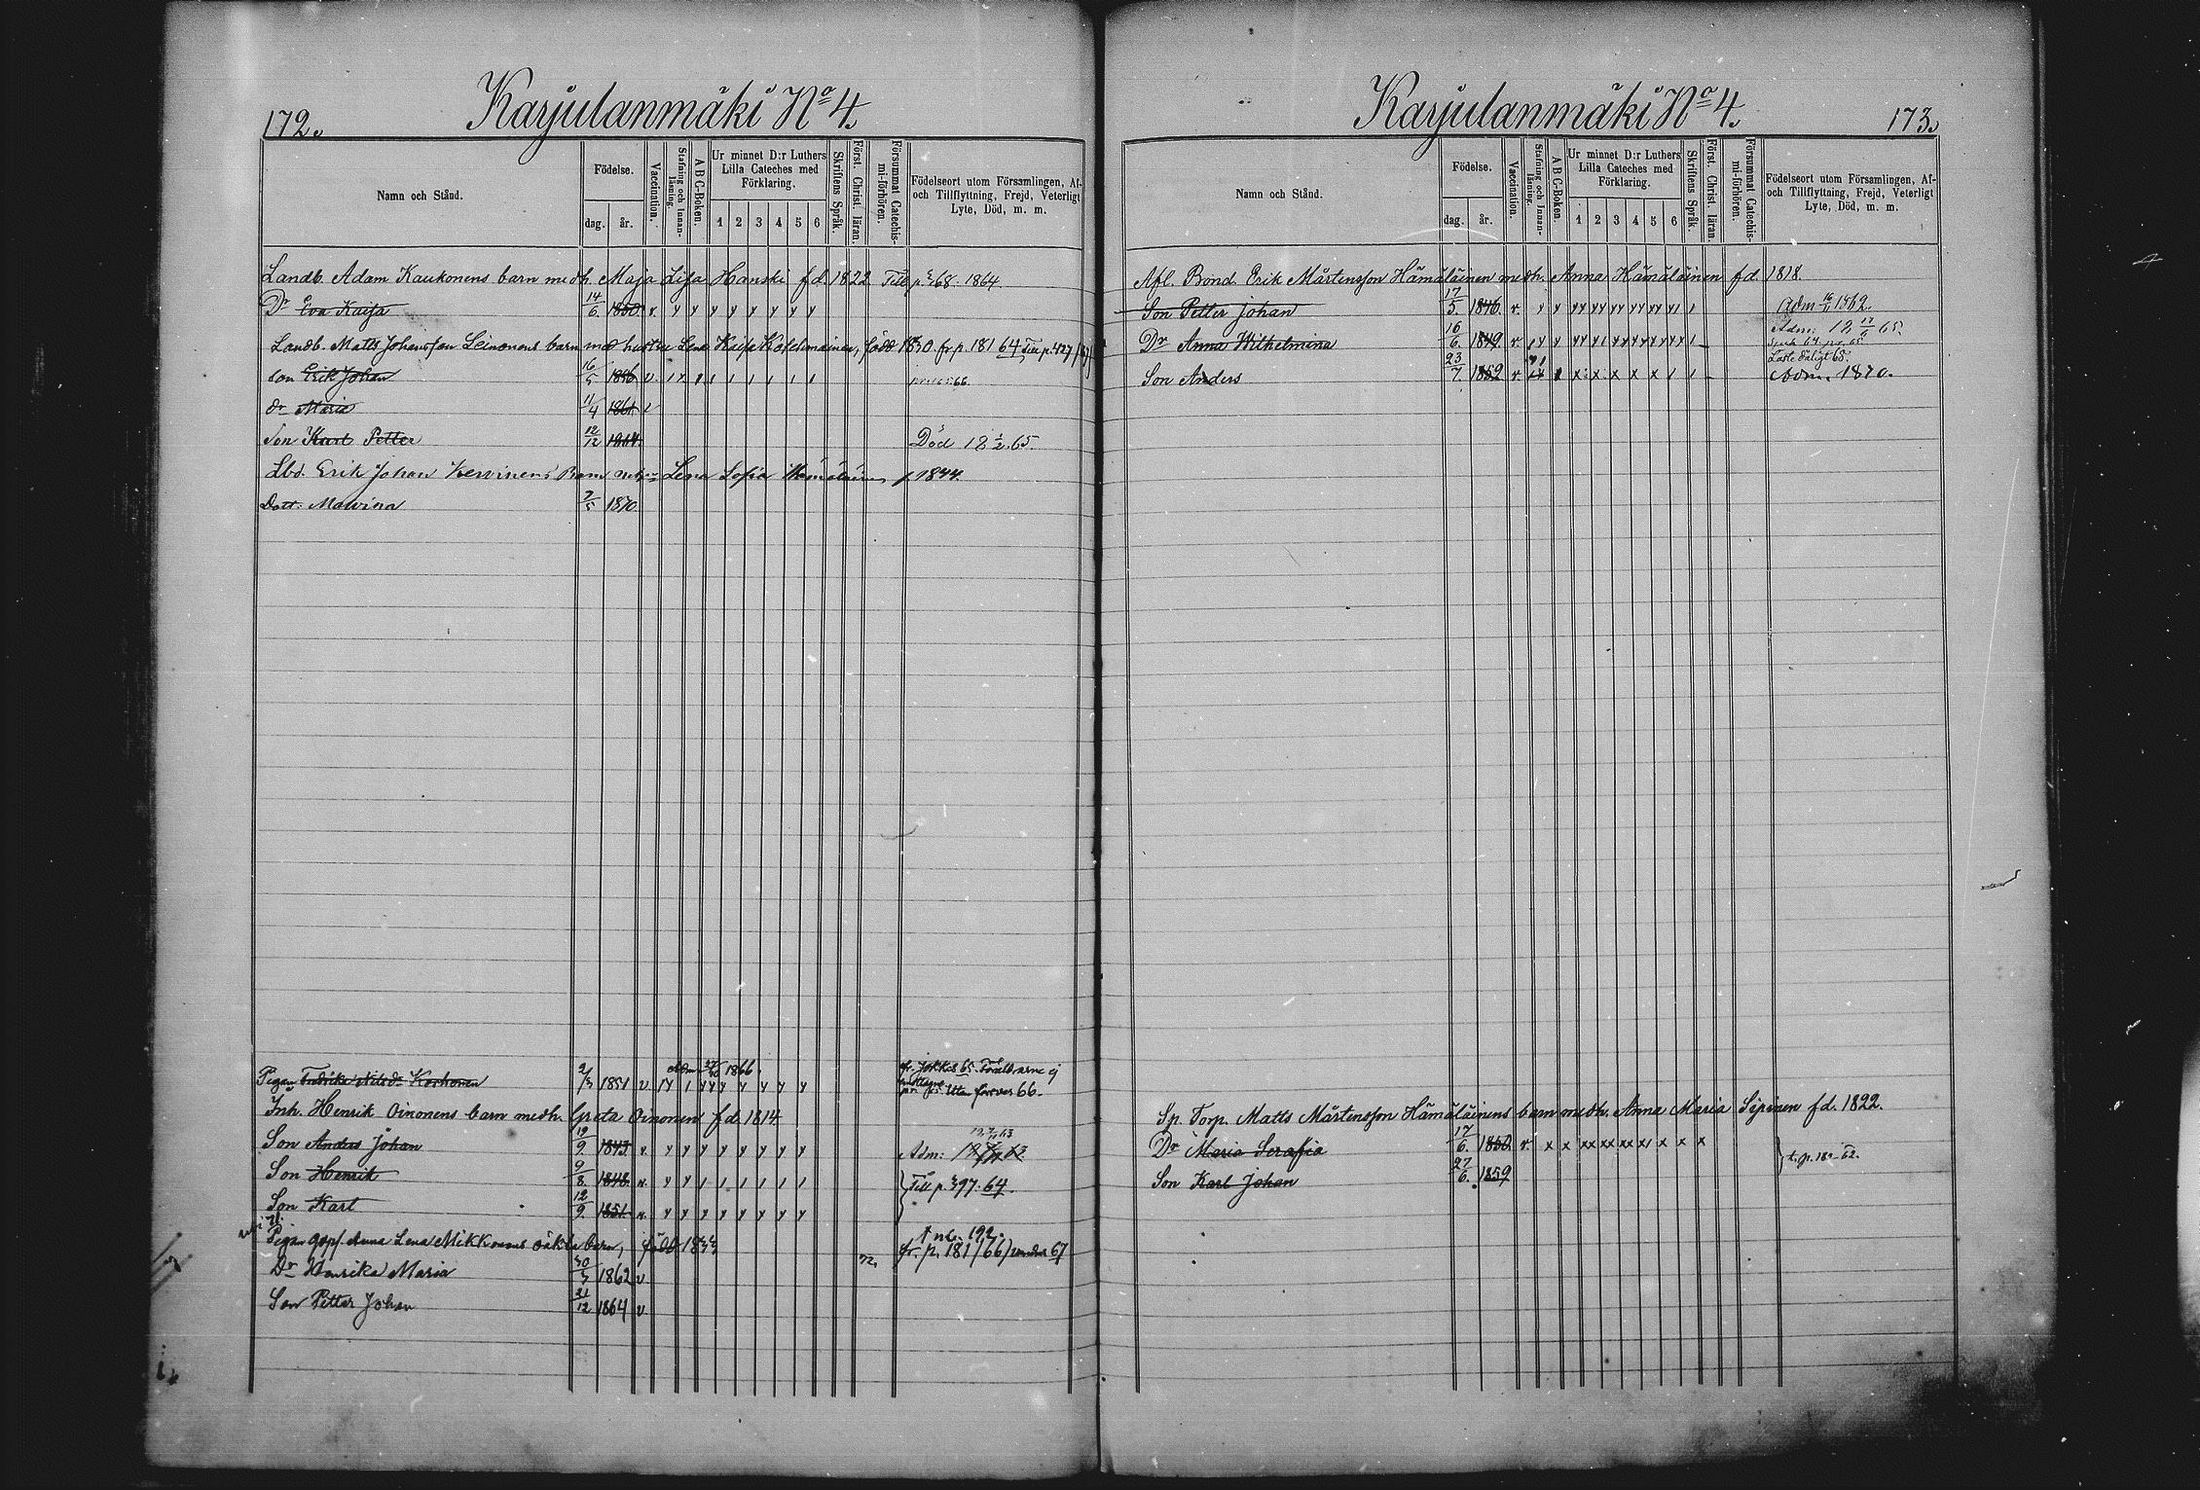 172.
Karjulanmäki No 4.
Namn och Stånd.
Födelse.
dag.
år.
Vaccination.
Stafning och Innanläsning.
A B C-Boken.
Ur minnet D:r Luthers Lilla Cateches med Förklaring.
1 2 3 4 5 6
Skriftens Språk.
Först. Christ. läran.
Försummat Catechismi-förhören.
Födelseort utom Församlingen, Af- och Tillflyttning, Frejd, Veterligt Lyte, Död, m. m.
Landb. Adam Kaukonens barn m e dh. Maja Lisa Hanski f d. 1822 Till p. 368. 1864
Dr Eva Kaisa 14/6. 1850. v. y y y y y y y y
Landb. Matts Johansson Leinonens barn med hustru Lena Kaisa född 1830. fr p. 181 64, Till p. 427
Son Erik Johan 16/5 1856 v.
dr Maria 11/4 1861
Son Karl Petter 12/12 1864. Död 18 1/2 65.
Lbd. Erik Johan Kervinens Barn Lena Sofia Hämäläinen f. 1844.
Dott. Malvina 7/5 1870.
Pigan Fredrika Nilsdr Korhonen 2/3 1851 v Adm 1866. fr. Jokkas 65. Föräldrarne ej
66.
Inh. Henrik Oinonens barn medh. Greta Oinonen f d. 1814.
Son Anders Johan 19/9. 1843. v. Adm:
Son Henrik 9/8. 1848. v. Till p. 397. 64.
Son Karl 12/9. 1851. v. y y y y y y y y
Pigan Anna Lena Mikkonens oäkta barn, född 1833 fr. p. 181/66 under 67
Dr Henrika Maria 30/3 1862 v
Son Petter Johan 21/12 1864 v
Karjulanmäki No 4.
173.
Namn och Stånd.
Födelse.
dag.
år.
Vaccination.
Stafning och Innanläsning.
A B C-Boken.
Ur minnet D:r Luthers Lilla Cateches med Förklaring.
1 2 3 4 5 6
Skriftens Språk.
Först. Christ. läran.
Försummat Catechismi-förhören.
Födelseort utom Församlingen, Af- och Tillflyttning, Frejd, Veterligt Lyte, Död, m. m.
Afl. Bond. Erik Mårtensson Hämäläinen medh. Anna Hämäläinen f d. 1818.
Son Petter Johan 17/5. 1846. v. Adm 1862.
Dr Anna Wilhelmina 16/6. 1849. v. Adm: 65.
Läste dåligt 68.
Son Anders 23/7. 1852 v. Adm. 1870.
Sp. Torp. Matts Mårtensson Hämäläinens barn medh. Anna Maria Sipinen f d. 1822.
Dr Maria Serafia 17/6. 1850. v. t. p. 62.
Son Karl Johan 27/6. 1859